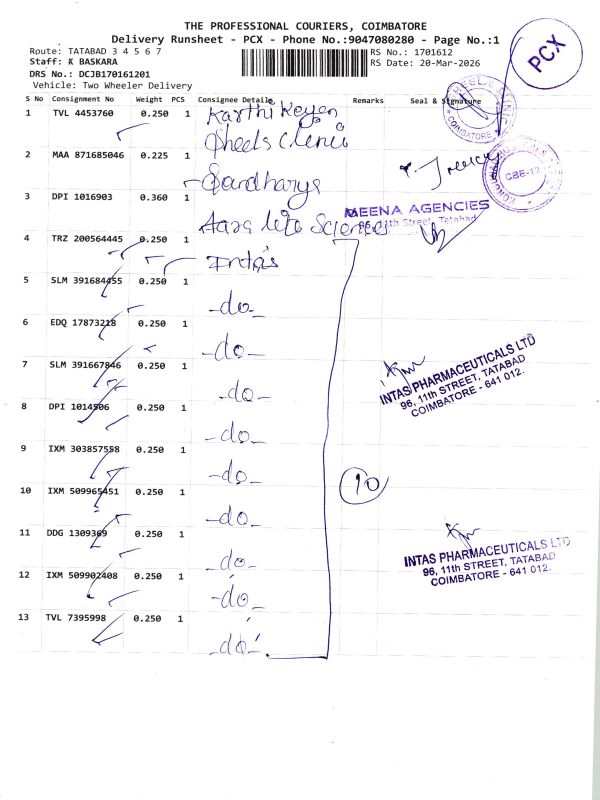 THE PROFESSIONAL COURIERS, COIMBATORE
Delivery Runsheet - PCX - Phone No.:9047080280 - Page No.:1
Route: TATABAD 3 4 5 6 7
Staff: K BASKARA
DRS No.: DCJB170161201
Vehicle: Two Wheeler Delivery
RS No.: 1701612
RS Date: 20-Mar-2026
PCX
S No Consignment No Weight PCS Consignee Details Remarks Seal & Signature
1 TVL 4453760 0.250 1 Karthi Keyen
Sheels Clinic
COIMBATORE
2 MAA 871685046 0.225 1
Gandharya
CBE-12
3 DPI 1016903 0.360 1 Aara life Sciences
MEENA AGENCIES
96, 11th Street, Tatabad
4 TRZ 200564445 0.250 1 Intas
5 SLM 391684455 0.250 1 -do-
6 EDQ 17873218 0.250 1 -do-
7 SLM 391667846 0.250 1 -do-
INTAS PHARMACEUTICALS LTD
96, 11th STREET, TATABAD
COIMBATORE - 641 012.
8 DPI 1014506 0.250 1 -do-
9 IXM 303857558 0.250 1 -do-
10
10 IXM 509965451 0.250 1 -do-
11 DDG 1309369 0.250 1 -do-
INTAS PHARMACEUTICALS LTD
96, 11th STREET, TATABAD
COIMBATORE - 641 012.
12 IXM 509902408 0.250 1 -do-
13 TVL 7395998 0.250 1 -do-